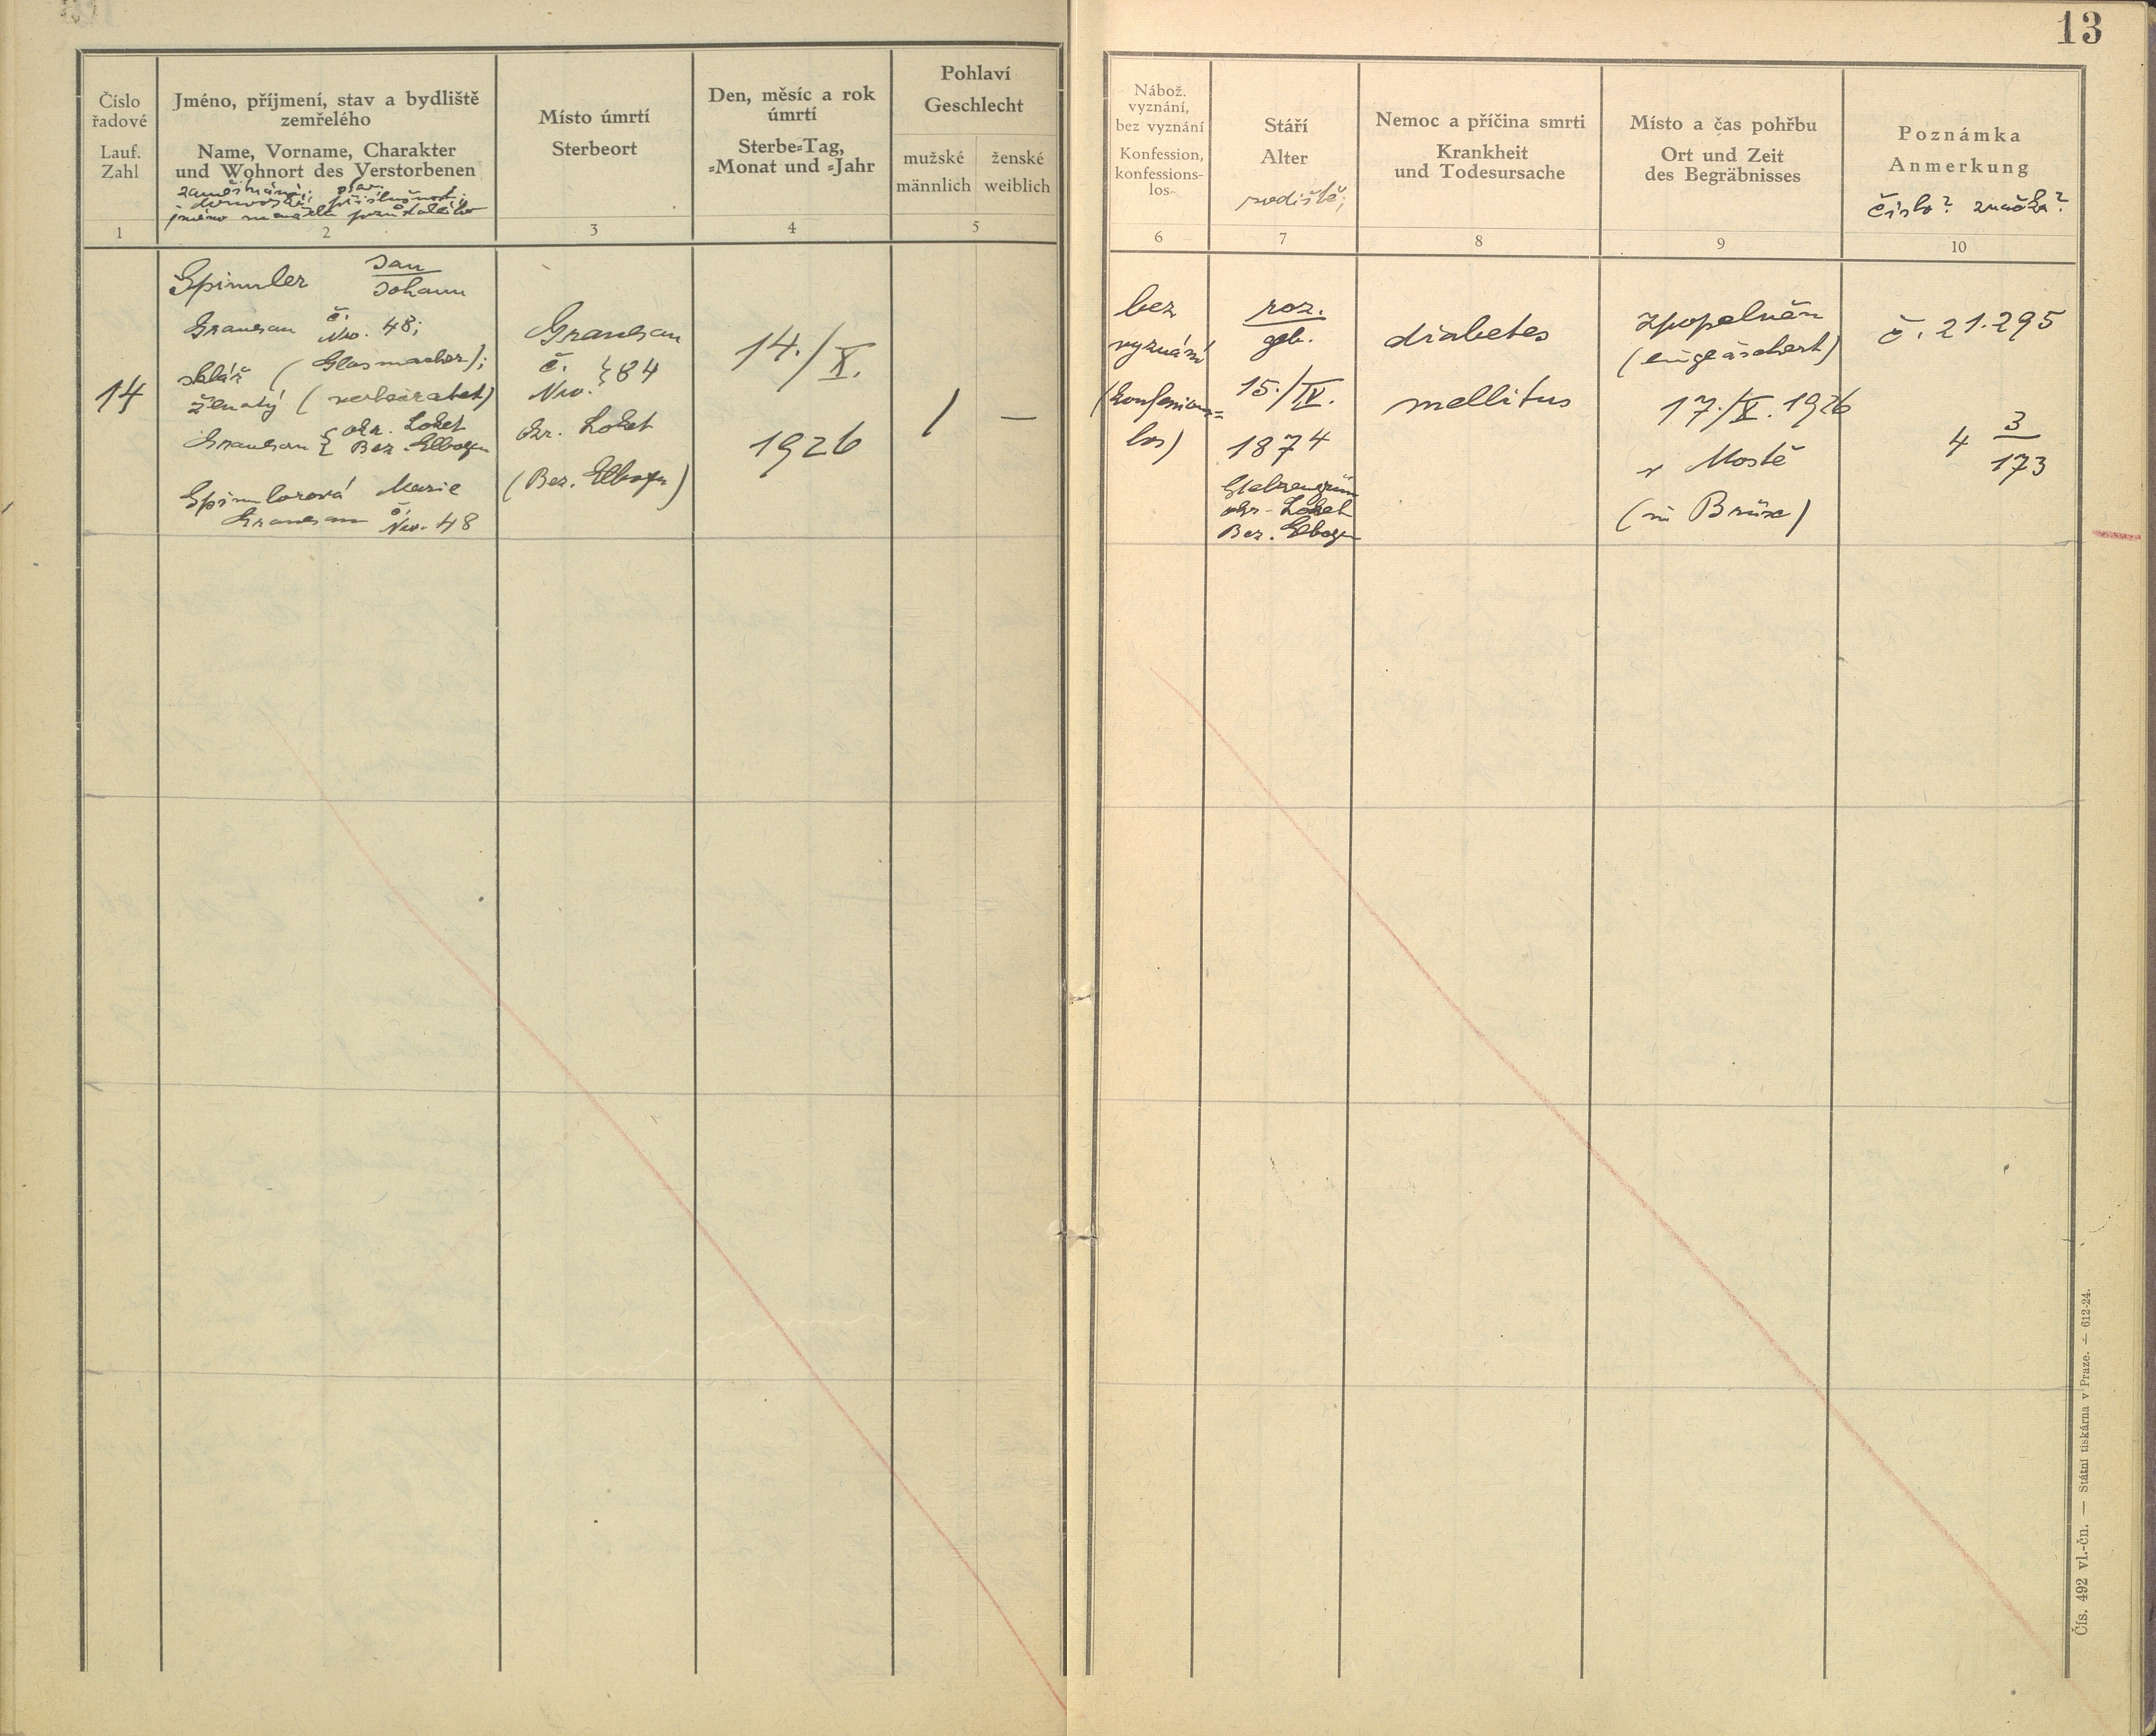 13
Číslo
řadové
Lauf.
Zahl
1
Jméno, příjmení, stav a bydliště
zemřelého
Name, Vorname, Charakter
und Wohnort des Verstorbenen
zaměstnání; stav;
domovská příslušnost;
jméno manžela pozůstalého
2
Místo úmrtí
Sterbeort
3
Den, měsíc a rok
úmrtí
Sterbe=Tag,
=Monat und =Jahr
4
Pohlaví
Geschlecht
mužské
männlich
ženské
weiblich
5
Nábož.
vyznání,
bez vyznání
Konfession,
konfessions-
los
6
Stáří
Alter
rodiště;
7
Nemoc a příčina smrti
Krankheit
und Todesursache
8
Místo a čas pohřbu
Ort und Zeit
des Begräbnisses
9
Poznámka
Anmerkung
číslo? značka?
10
14
Spimler Jan
Johann
Granesau č.
Nro. 48;
sklář (Glasmacher);
ženatý (verheiratet)
Granesau { okr. Loket
Bez. Elbogen
Spimlerová Marie
Granesau č.
Nro. 48
Granesau
č.
Nro. } 84
okr. Loket
(Bez. Elbogen)
14./X.
1926
1
—
bez
vyznání
(konfessions=
los)
roz.
geb.
15./IV.
1874
okr. Loket
Bez. Elbogen
diabetes
mellitus
zpopelněn
(eingeäschert)
17./X. 1926
v Mostě
(in Brüx)
č. 21.295
4 3
173
Čís. 492 vl.-čn. — Státní tiskárna v Praze. — 612-24.